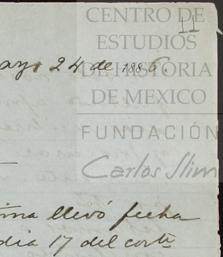 CENTRO DE
11
ESTUDIOS
ayo 24 de 1886.
DE HISTORIA
DE MEXICO
FUNDACIÓN
Carlos Slim
ima llevó fecha
dia 17 del corte